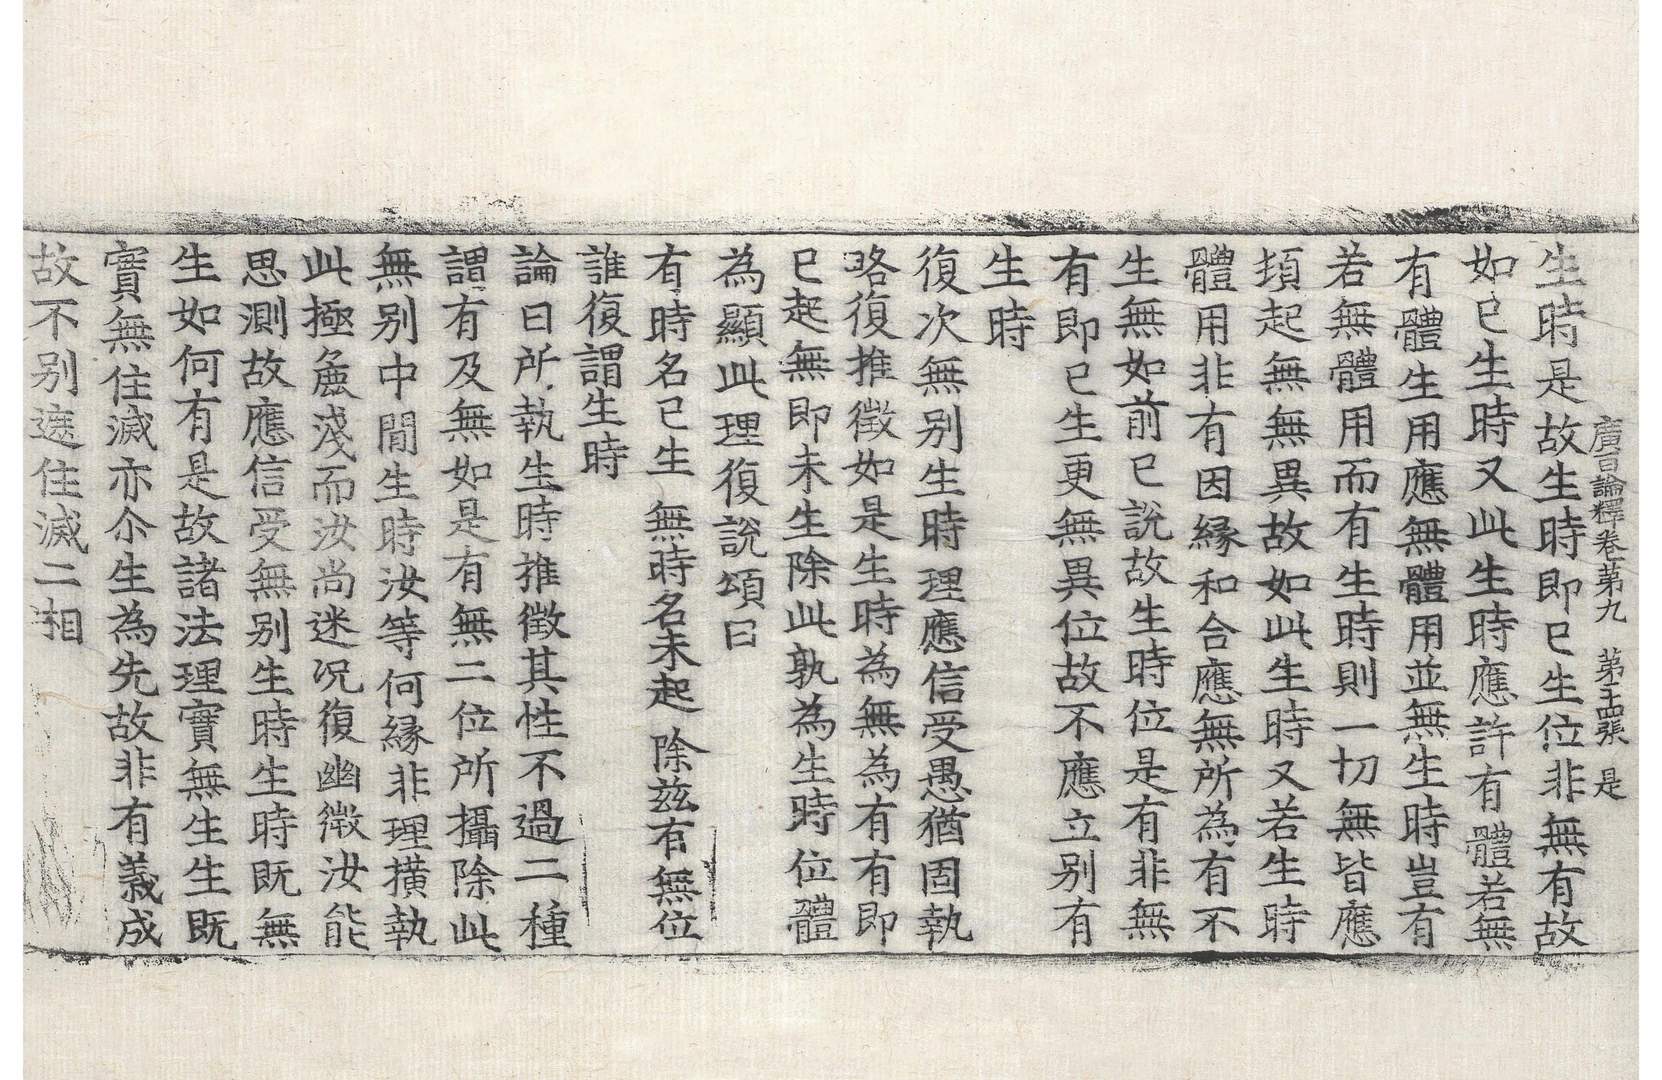 廣百論釋卷第九 第二十四張 是
生時是故生時即已生位非無有故
如已生時又此生時應許有體若無
有體生用應無體用並無生時豈有
若無體用而有生時則一切無皆應
頓起無無異故如此生時又若生時
體用非有因緣和合應無所為有不
生無如前已說故生時位是有非無
有即已生更無異位故不應立別有
生時
復次無別生時理應信受愚猶固執
略復推徵如是生時為無為有有即
已起無即未生除此孰為生時位體
為顯此理復說頌曰
有時名已生 無時名未起 除茲有無位
誰復謂生時
論曰所執生時推徵其性不過二種
謂有及無如是有無二位所攝除此
無別中間生時汝等何緣非理橫執
此極麁淺而汝尚迷況復幽微汝能
思測故應信受無別生時生時既無
生如何有是故諸法理實無生生既
實無住滅亦尒生為先故非有義成
故不別遮住滅二相